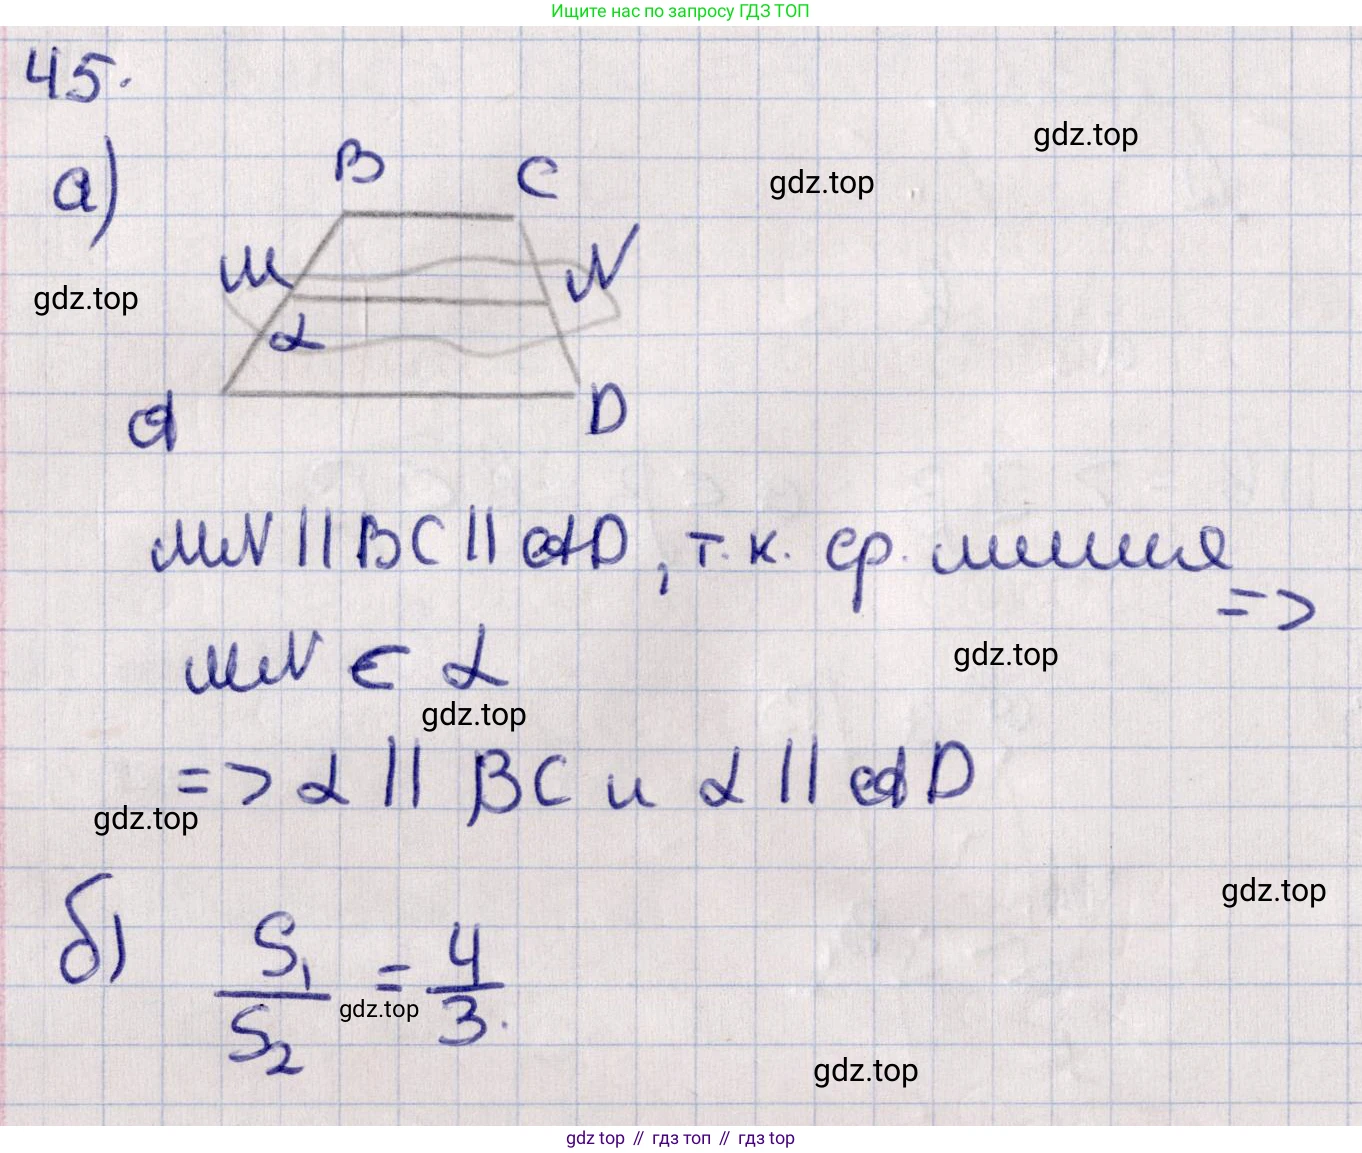 Ищите нас по запросу ГДЗ ТОП
45.
gdz.top
а)
B
C
gdz.top
M
N
gdz.top
α
A
D
MN || BC || AD, т.к. ср. линия
=>
MN ∈ α
gdz.top
gdz.top
=> α || BC и α || AD
gdz.top
gdz.top
б)
S₁/S₂ = 4/3.
gdz.top
gdz.top
gdz top // гдз топ // гдз top